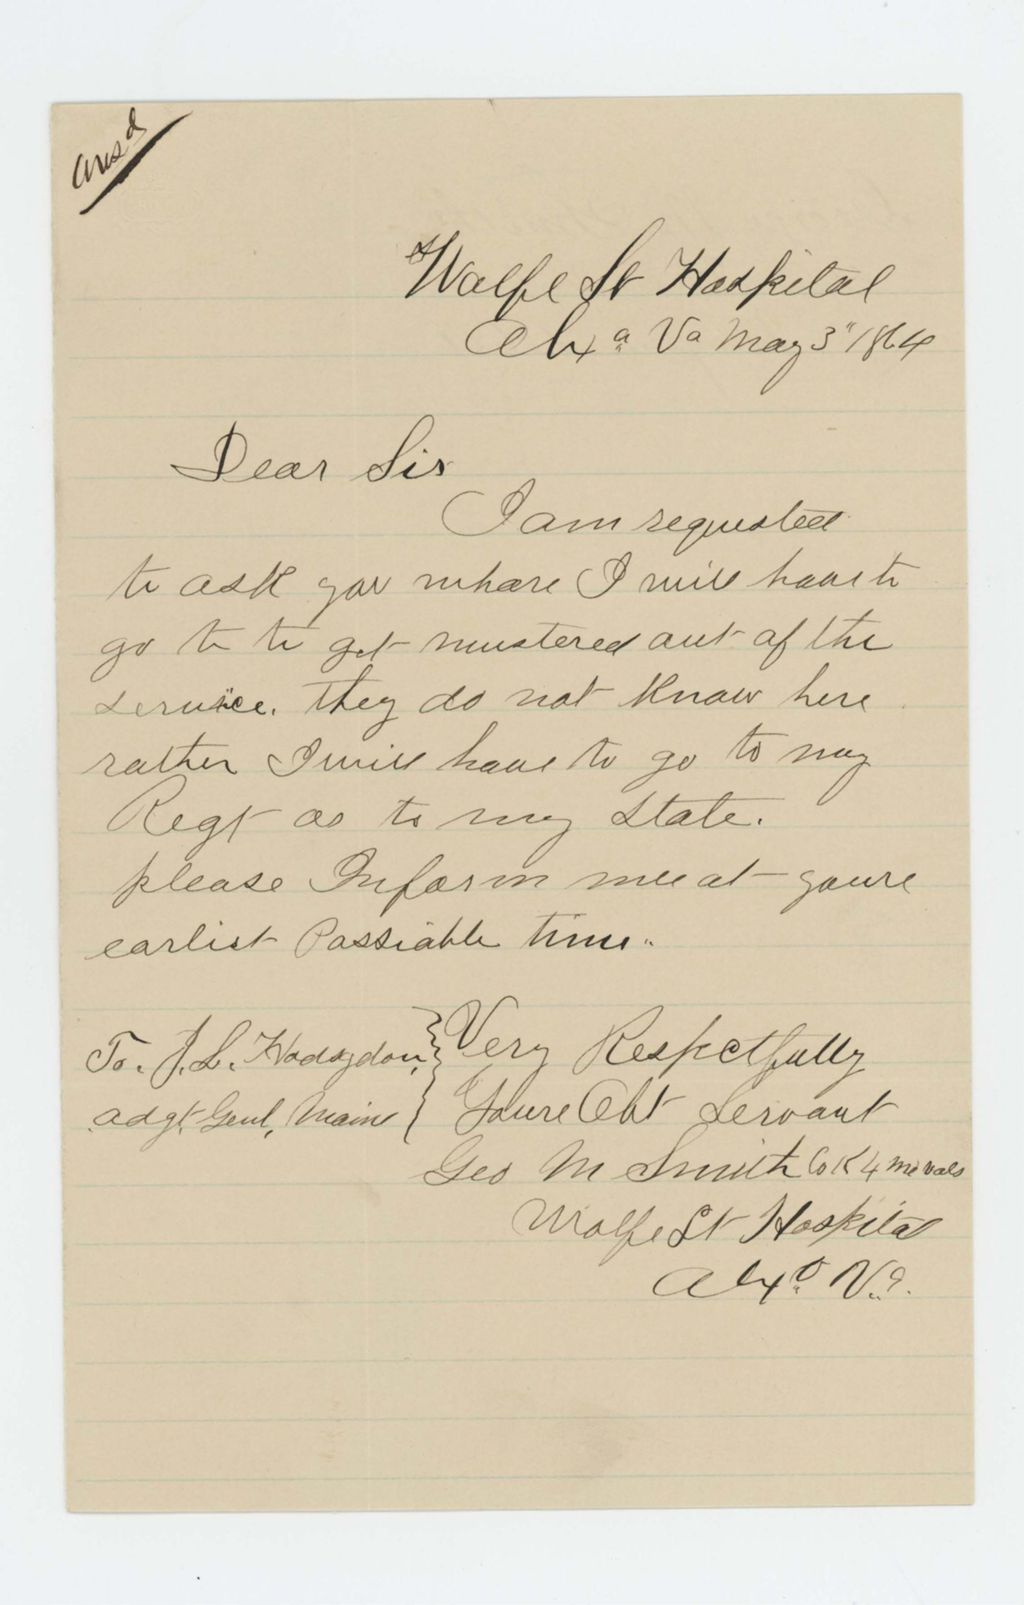 Ansd
Wolfe St Hospital
Alxa Va May 3" 1864
Dear Sir
I am requsted
to ask you whare I will have to
go to to get mustered out of the
service. they do not Know here
rather I will have to go to my
Regt or to my State.
please Inform me at youre
earlist Possiable time.
To. J. L. Hodsgdon, } Very Respectfully
adgt, Genl, Maine } Youre Obt Servant
Geo M Smith Co K 4 Me Vols
Wolfe St Hospital
Alxa Va.